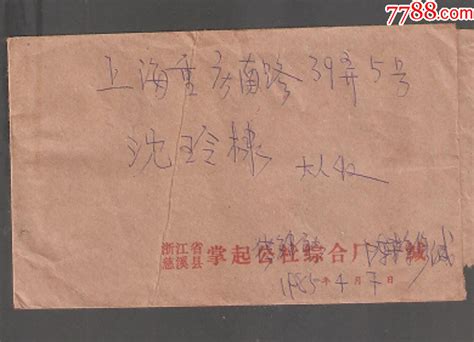 7788.com
上海重庆南路39弄5号
沈玲棣 大人收
浙江省
慈溪县 掌起公社综合厂 缄
1985年4月 日